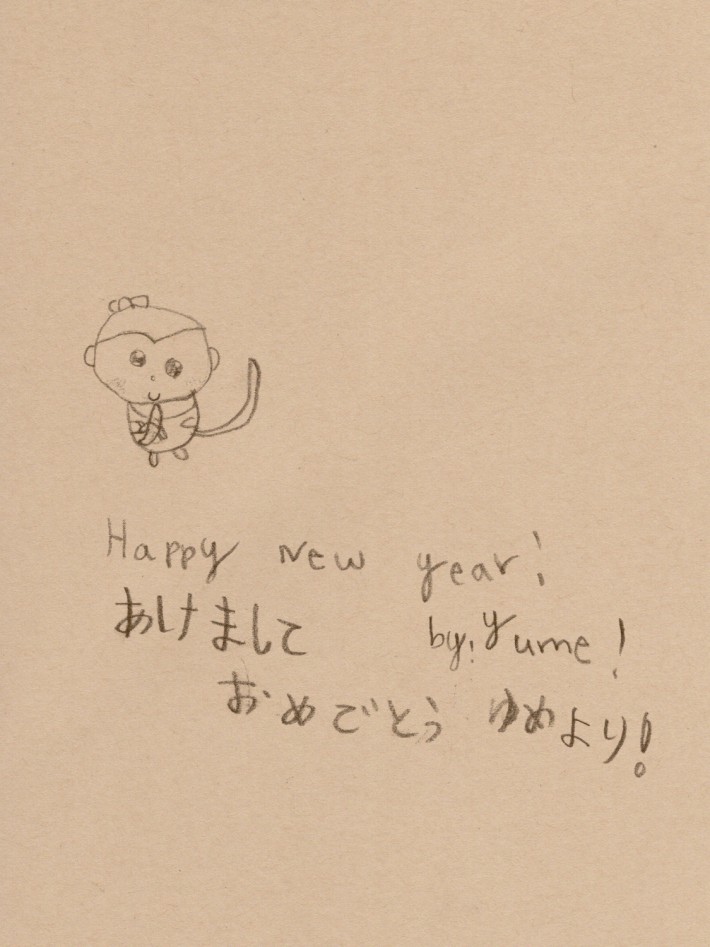 Happy New year!
あけまして
by. yume!
おめでとう ゆめより!